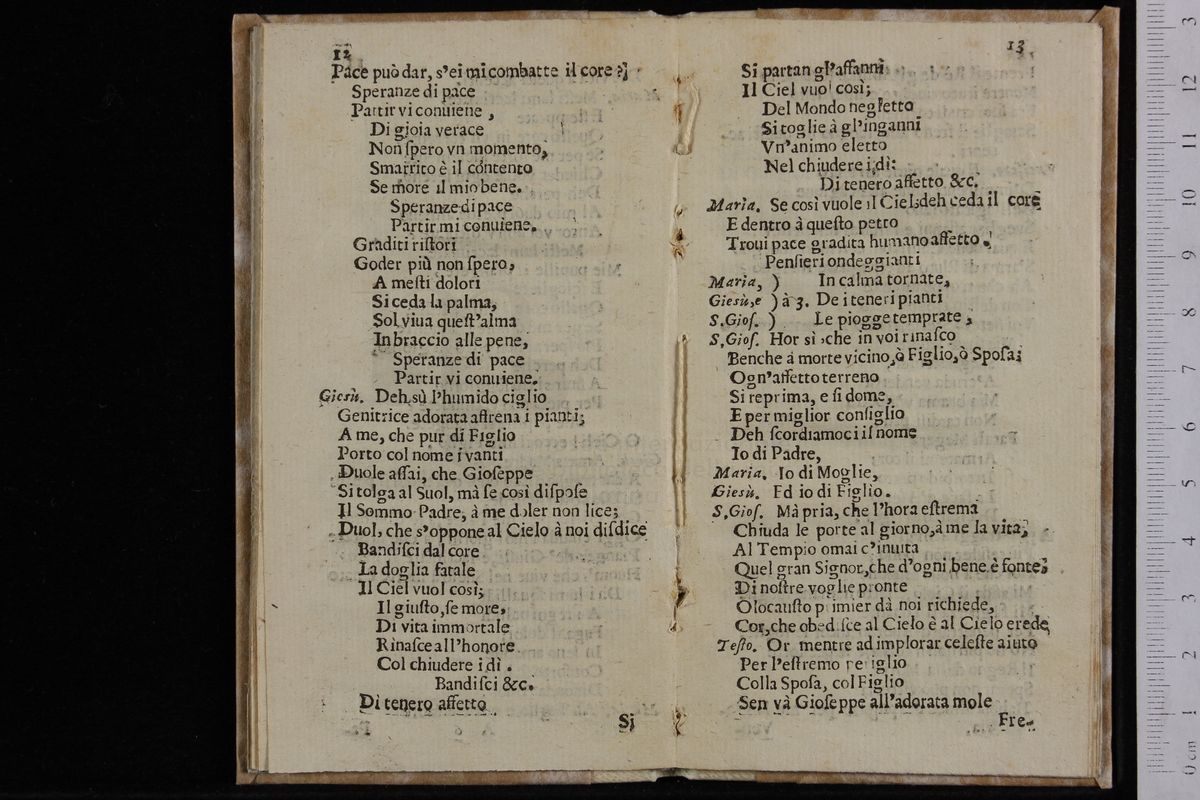 12
Pace può dar, s'ei mi combatte il core?
Speranze di pace
Partir vi conuiene,
Di gioia verace
Non ſpero vn momento,
Smarrito è il contento
Se more il mio bene.
Speranze di pace
Partir mi conuiene.
Graditi riſtori
Goder più non ſpero,
A meſti dolori
Si ceda la palma,
Sol viua queſt'alma
In braccio alle pene,
Speranze di pace
Partir vi conuiene.
Gieſù. Deh sù l'humido ciglio
Genitrice adorata affrena i pianti;
A me, che pur di Figlio
Porto col nome i vanti
Duole aſſai, che Gioſeppe
Si tolga al Suol, mà ſe così diſpoſe
Il Sommo Padre, à me doler non lice;
Duol, che s'oppone al Cielo à noi diſdice
Bandiſci dal core
La doglia fatale
Il Ciel vuol così;
Il giuſto, ſe more,
Di vita immortale
Rinaſce all'honore
Col chiudere i dì.
Bandiſci &c.
Di tenero affetto
Si
13
Si partan gl'affanni
Il Ciel vuol così;
Del Mondo negletto
Si toglie à gl'inganni
Vn'animo eletto
Nel chiudere i dì:
Di tenero affetto &c.
Maria. Se così vuole il Ciel, deh ceda il core
E dentro à queſto petto
Troui pace gradita humano affetto.
Penſieri ondeggianti
Maria, ) In calma tornate,
Giesù, e ) à 3. De i teneri pianti
S. Gioſ. ) Le piogge temprate,
S. Gioſ. Hor sì, che in voi rinaſco
Benche à morte vicino, ò Figlio, ò Spoſa;
Ogn'affetto terreno
Si reprima, e ſi dome,
E per miglior conſiglio
Deh ſcordiamoci il nome
Io di Padre,
Maria. Io di Moglie,
Gieſù. Ed io di Figlio.
S. Gioſ. Mà pria, che l'hora eſtrema
Chiuda le porte al giorno, à me la vita;
Al Tempio omai c'inuita
Quel gran Signor, che d'ogni bene è fonte;
Di noſtre voglie pronte
Olocauſto primier dà noi richiede,
Cor, che obediſce al Cielo è al Cielo erede,
Teſto. Or mentre ad implorar celeſte aiuto
Per l'eſtremo periglio
Colla Spoſa, col Figlio
Sen và Gioſeppe all'adorata mole
Fre-
0 cm 1 2 3 4 5 6 7 8 9 10 11 12 13